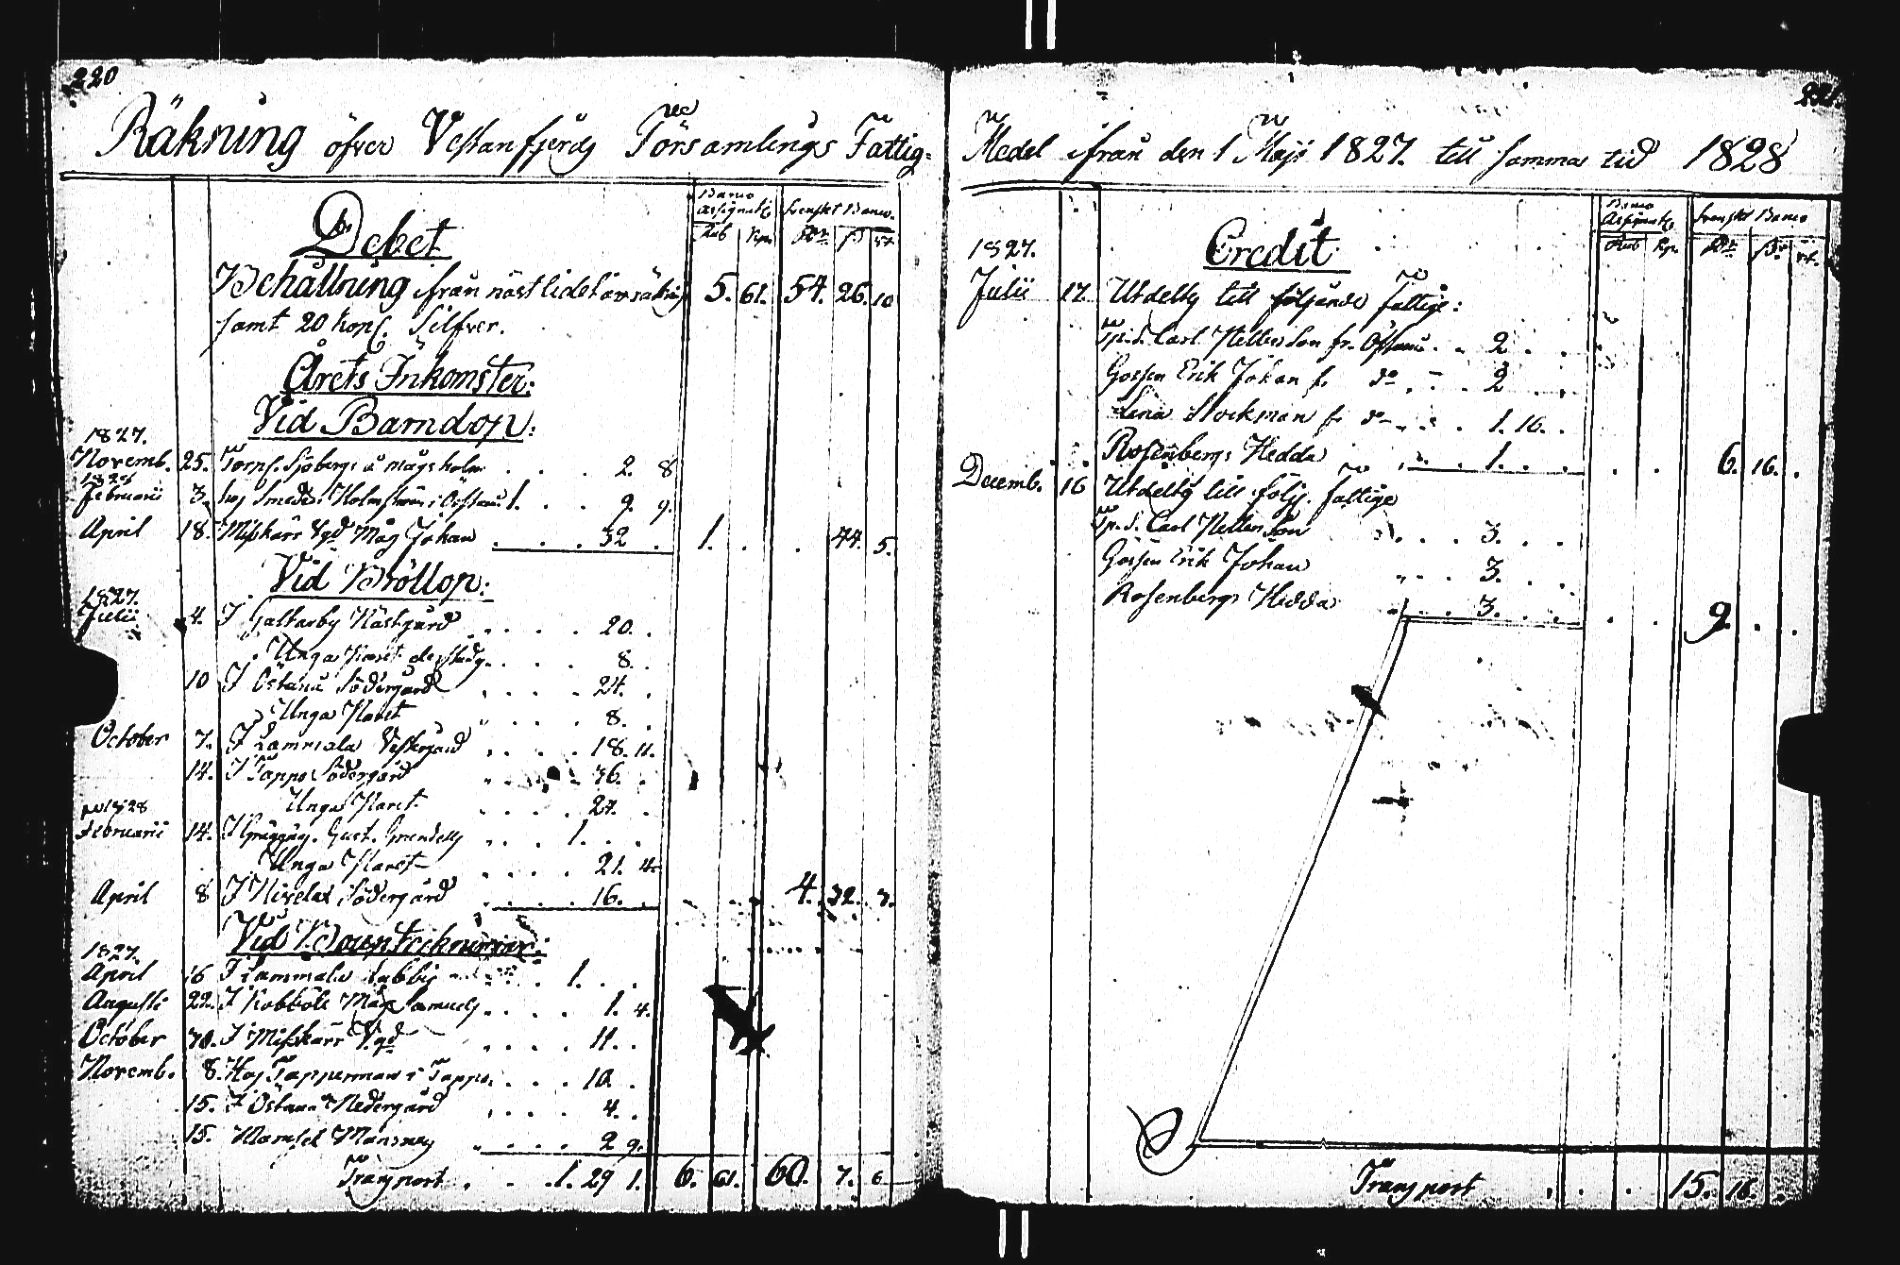 220
Räkning öfver Vestanfjerds Församlings Fattig-
Banco Assignat. Svenskt Banco.
Rub Kop. Rdr ß rt.
Debet
Behållning ifrån nästlidet års räkning 5. 61. 54. 26. 10
samt 20 kop. Silfver.
Årets Inkomster:
Vid Barndop:
1827.
Novemb. 25. Torp. Sjöbergs å Mågsholm . . . 2. 8
1828
Februarii 3. hos Smeden Holmström i Östanå 1. . . . 9. 9.
April 18. Misskärr Vgd Måg Johan . . . 32 . 1. . . 44. 5.
Vid Bröllop:
1827.
Julii 4. I Galtarby Nästgård . . . . 20. .
Unga Paret dersamma . . . 8. .
10 I Östanå Södergård . . . . 24. .
Unga Paret . . . . 8. .
October 7. I Lammala Vestergård . . . . 18. 11.
14. I Tappo Södergård . . . 36. .
Unga Paret . . . . 24. .
1828
Februarii 14. I Gräggnäs. Gust. . . . 1. . .
Unga Paret . . . . 21. 4.
April 8 I Nivelax Södergård . . . . 16. . . . 4. 32. 3.
Vid
1827.
April 16 I Lammala . . . 1. . . .
Augusti 22. I Kobböle Måg Samuels . . . . 1. 4.
October 30. I Misskärr Vgd . . . . 11. .
Novemb. 8. Hos Tapperman i Tappo . . . 10. .
15. I Östanå Nedergård . . . . 4. .
15. Mamsel . . . . 2 9.
Transport . . . 1. 29 1. 6. 61. 60. 7. 6
221
Medel ifrån den 1 Maji 1827. till samma tid 1828
Banco Assignat. Svenskt Banco
Rub Kp. Rdr ß. rt.
1827. Credit
Julii 17. Utdelts till följande Fattige:
Carl Nelleson fr. Östanå . . 2 . .
Gossen Erik Johan fr. do . . . 2 . .
Lena Stockman fr. do . . . 1. 16. .
Rosenbergs Hedda . . . 1. . . . . 6. 16. .
Decemb. 16 Utdelts till följ. fattige
Carl Nelleson . . . 3. . .
Gossen Erik Johan . . . 3. . .
Rosenbergs Hedda . . . 3. . . . . 9. . .
Transport . . . 15. 16. .